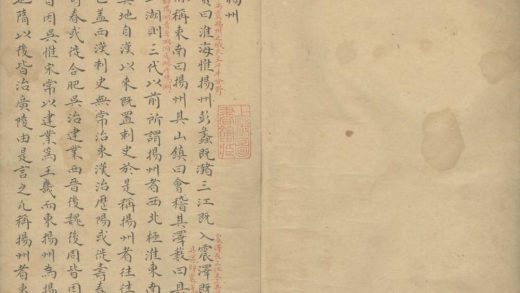 揚州
貢曰淮海惟揚州彭蠡既瀦三江既入震澤既
稱東南曰揚州其山鎮曰會稽其澤藪曰具
湖則三代以前所謂揚州者西北極淮東南
其地自漢以來既置刺史於是稱揚州者往往
已蓋而漢刺史無常治東漢治歷陽或徙壽春
春或徙合肥吳治建業西晉後魏後周皆因
皆因吳惟宋常以建業爲王畿而東揚州爲揚
地隋以後皆治廣陵由是言之凡稱揚州者東
上海圖
書館藏